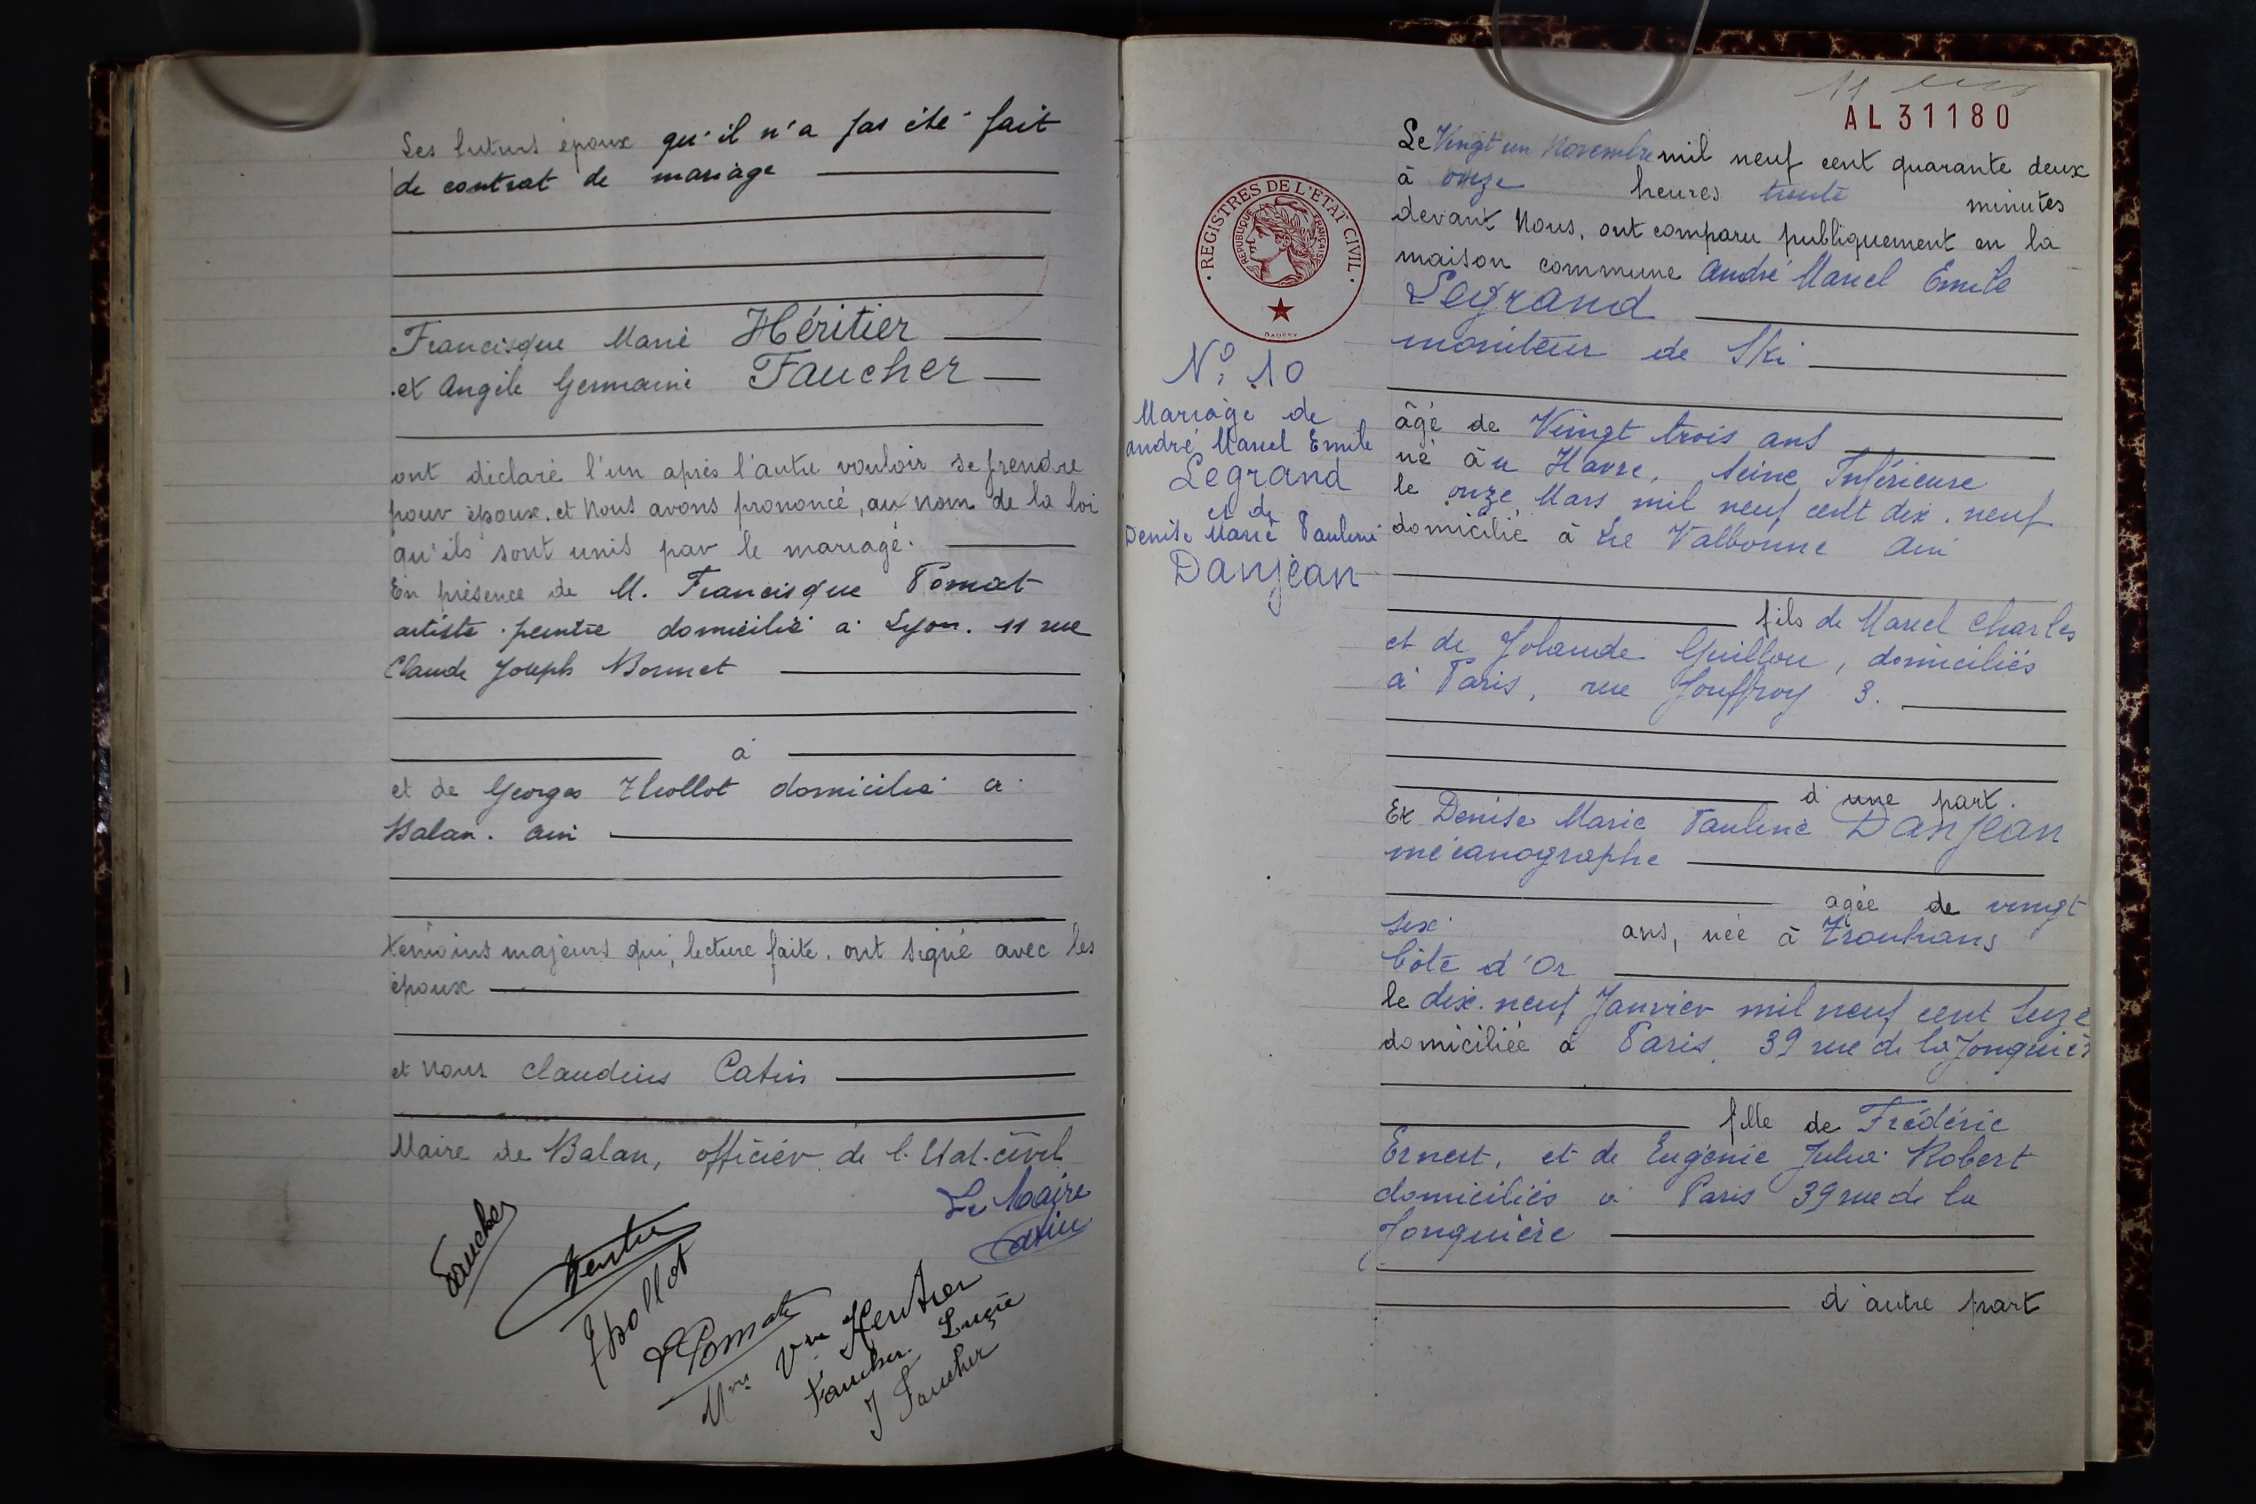 Les futurs époux qu'il n'a pas été fait
de contrat de mariage
Francisque Marie Héritier
et Angèle Germaine Faucher
ont déclaré l'un après l'autre vouloir se prendre
pour époux. et Nous avons prononcé, au nom de la loi
qu'ils sont unis par le mariage.
En présence de M. Francisque Pomat
artiste-peintre domicilié à Lyon. 11 rue
Claude Joseph Bonnet
à
et de Georges Thollot domicilié à
Balan. Ain
témoins majeurs qui, lecture faite, ont signé avec les
époux
et Nous Claudius Catin
Maire de Balan, officier de l'Etat-civil
Le Maire
Catin
Faucher
Héritier
Thollot
F Pomat
Mme Vve Héritier
Faucher Lucie
J Faucher
AL 31180
REGISTRES DE L'ETAT CIVIL
REPUBLIQUE FRANÇAISE
Le Vingt un Novembre mil neuf cent quarante deux
à onze heures trente minutes
devant Nous, ont comparu publiquement en la
maison commune André Marcel Emile
Legrand
moniteur de Ski
âgé de Vingt trois ans
né àu Havre, Seine Inférieure
le onze Mars mil neuf cent dix-neuf
domicilié à La Valbonne Ain
fils de Marcel Charles
et de Yolande Guillou, domiciliés
à Paris, rue Jouffroy 3.
d'une part.
Et Denise Marie Pauline Danjean
mécanographe
agée de vingt
six ans, née à Trouhans
Côte d'Or
le dix-neuf Janvier mil neuf cent seize
domiciliée à Paris, 39 rue de la Jonquière
fille de Frédéric
Ernest, et de Eugénie Julia Robert
domiciliés à Paris 39 rue de la
Jonquière
d'autre part
N° 10
Mariage de
André Marcel Emile
Legrand
et de
Denise Marie Pauline
Danjean